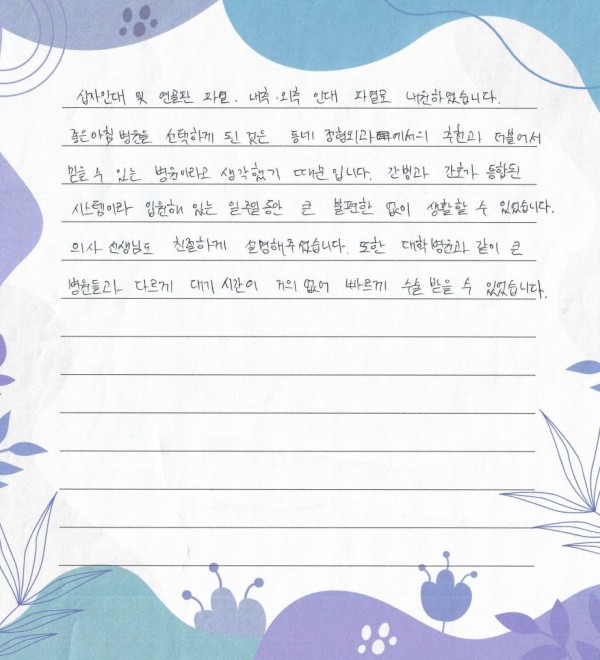 십자인대 및 연골판 파열, 내측·외측 인대 파열로 내원하였습니다.
좋은아침병원을 선택하게 된 것은 동네 정형외과에서의 추천과 더불어서
믿을 수 있는 병원이라고 생각했기 때문입니다. 간병과 간호가 통합된
시스템이라 입원해 있는 일주일동안 큰 불편함 없이 생활할 수 있었습니다.
의사 선생님도 친절하게 설명해주셨습니다. 또한 대학병원과 같이 큰
병원들과 다르게 대기 시간이 거의 없어 빠르게 수술 받을 수 있었습니다.